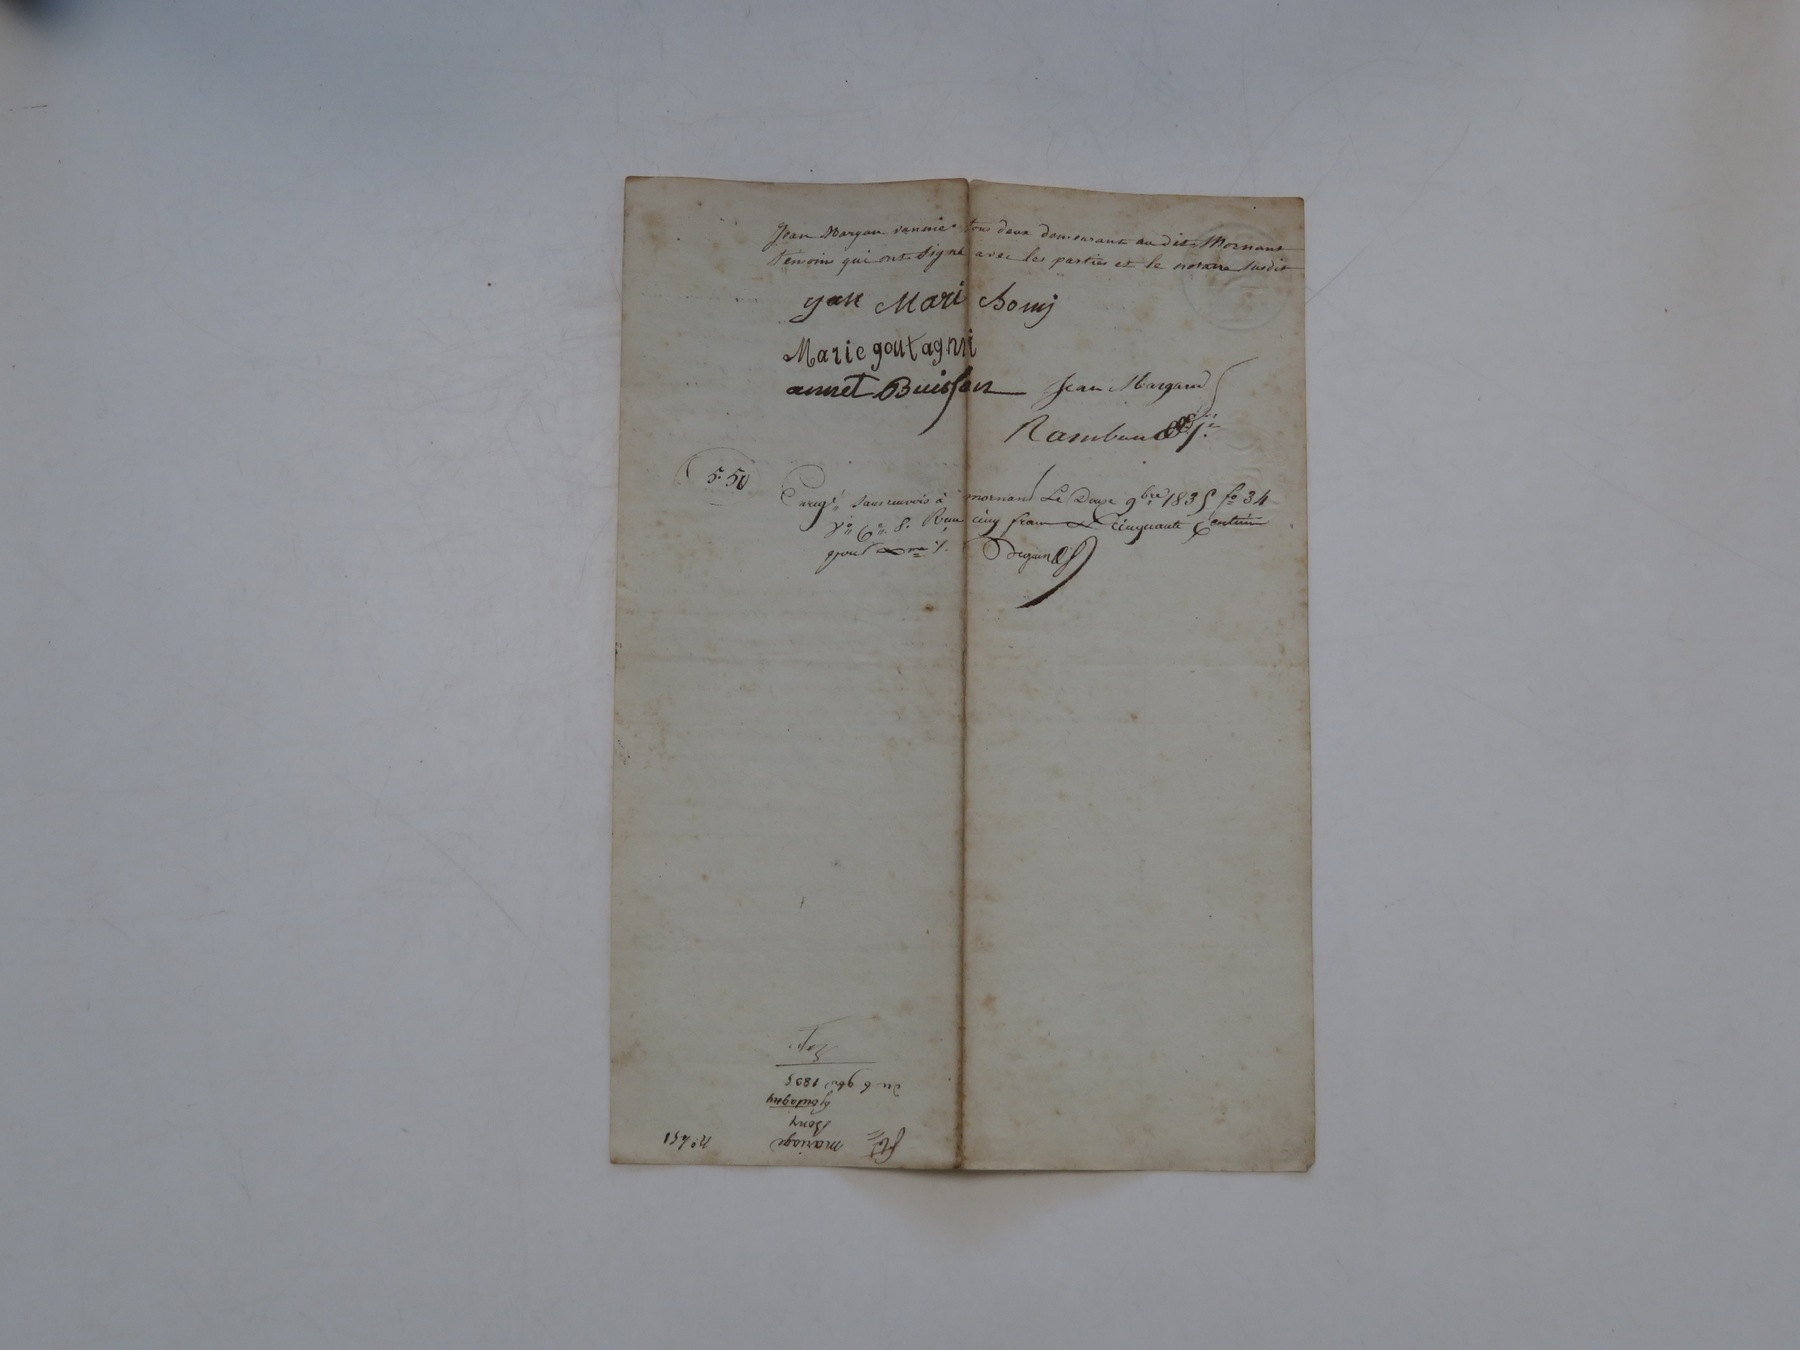 Jean Margau vannie tous deux demeurant au dit Mornant
témoins qui ont signé avec les parties et le notaire susdit
yean Mari bonij
Marie goutagnii
annet Buisson Jean Margaud
Rambaud
5.50 Enreg. sans renvois à mornant Le Douze 9bre 1835 fo 34
Vo Co 8. Reçu cinq francs cinquante Centimes
pour
n° 451
mariage
Bony
Goutagny
du 6 9bre 1835